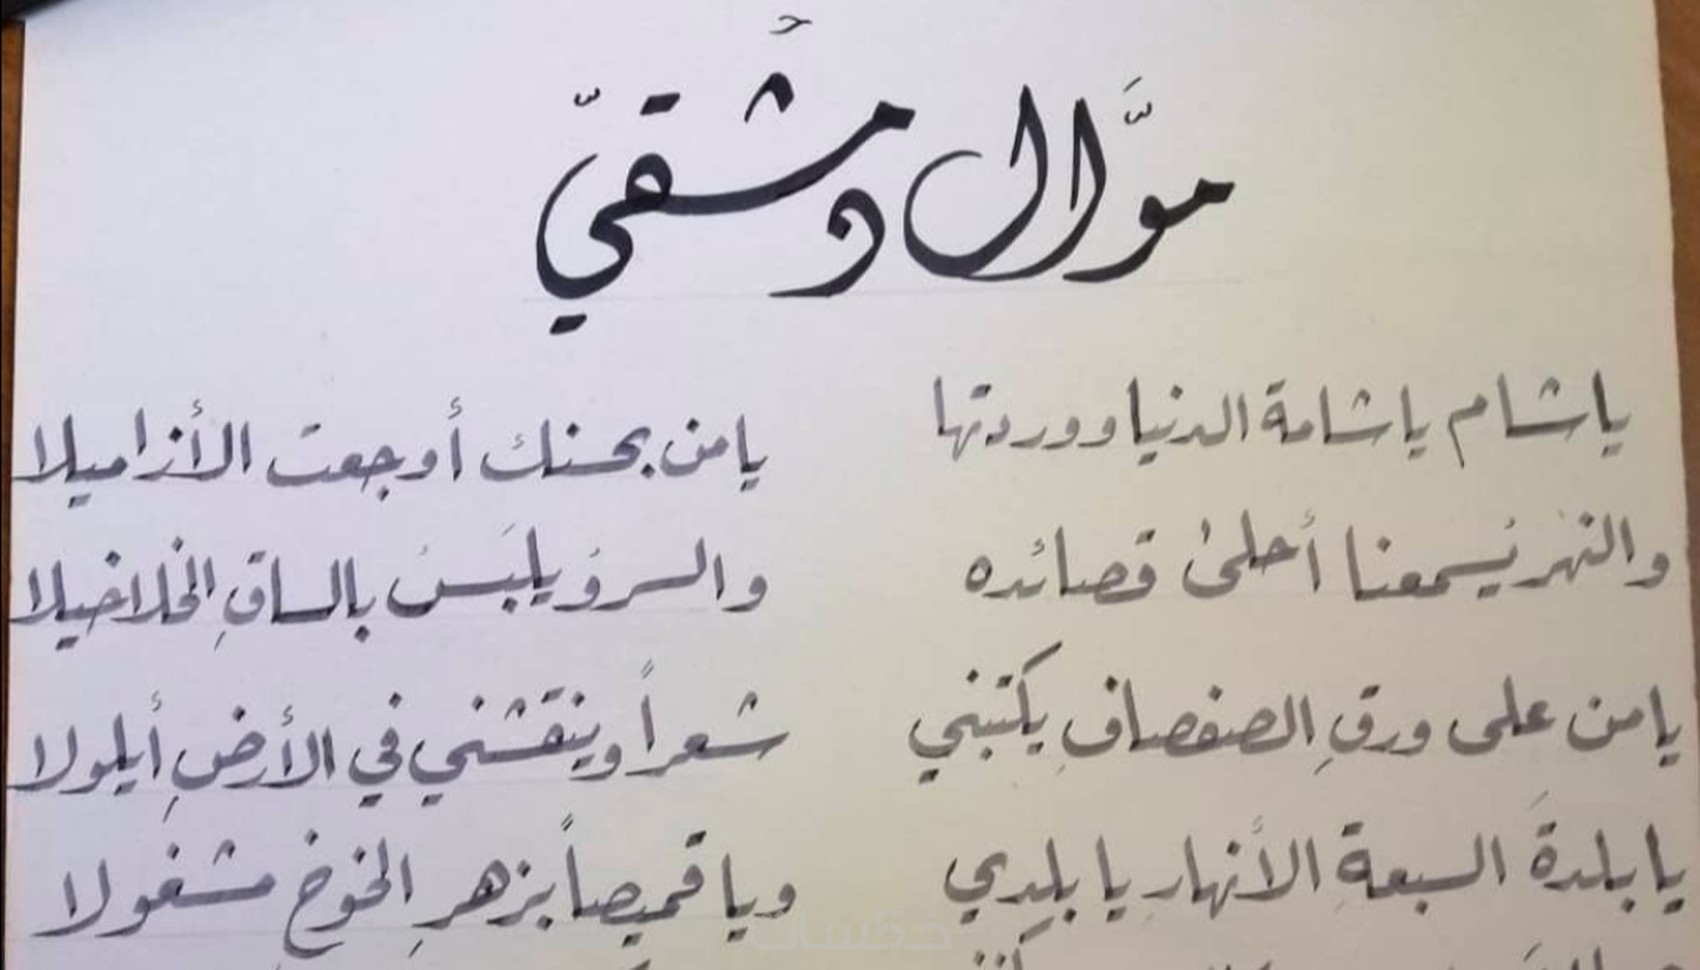 موَّال دمشقيّ
ياشام ياشامة الدنيا ووردتها يامن بحسنك أوجعت الأزاميلا
والنهر يُسمعنا أحلى قصائده والسروُ يلبَسُ بالساقِ الخلاخيلا
يامن على ورقِ الصفصافِ يكتبني شعراً وينقشني في الأرضِ أيلولا
يا بلدةَ السبعةِ الأنهارِ يا بلدي ويا قميصاً بزهرِ الخوخِ مشغولا
خمسات